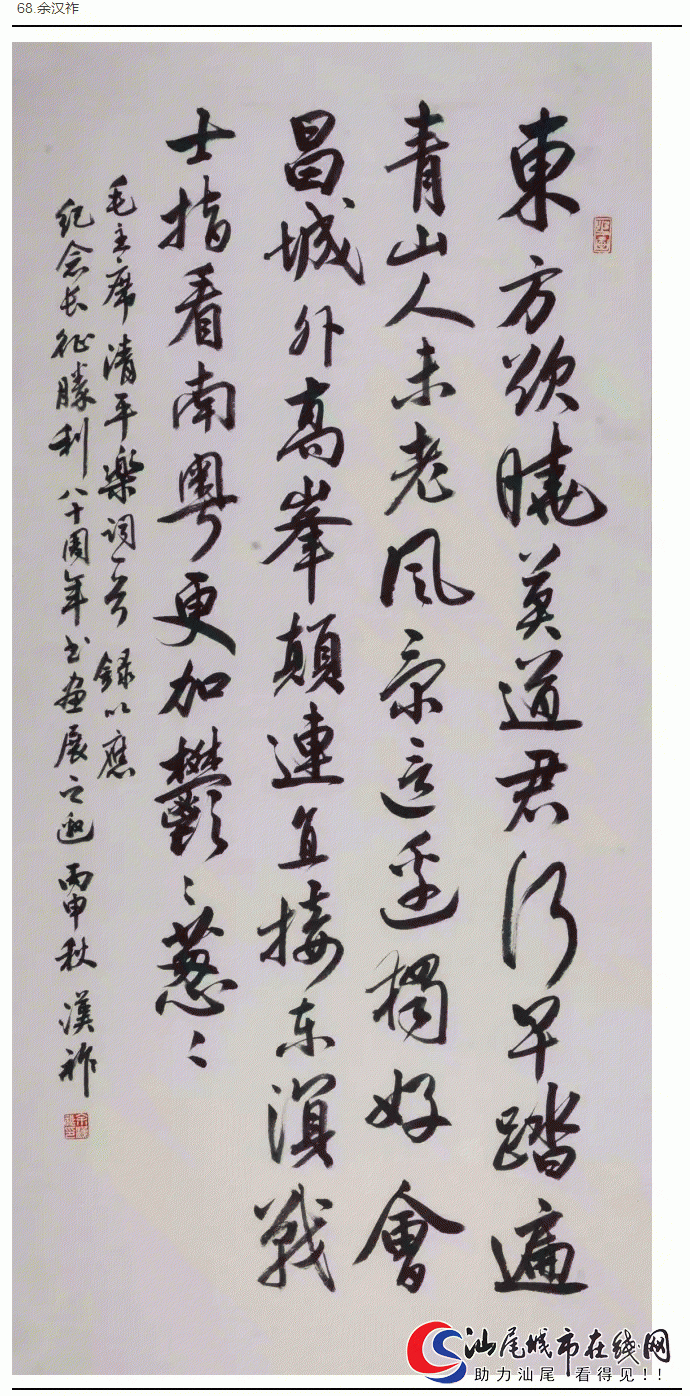 68.余汉祚
東方欲曉莫道君行早踏遍
青山人未老风景這邊獨好會
昌城外高峯顛連直接东溟戰
士指看南粵更加鬱〻葱〻
毛主席清平樂詞一首 録以應
纪念长征勝利八十周年书画展之邀 丙申秋 漢祚
汕尾城市在线网
助力汕尾 看得见!!